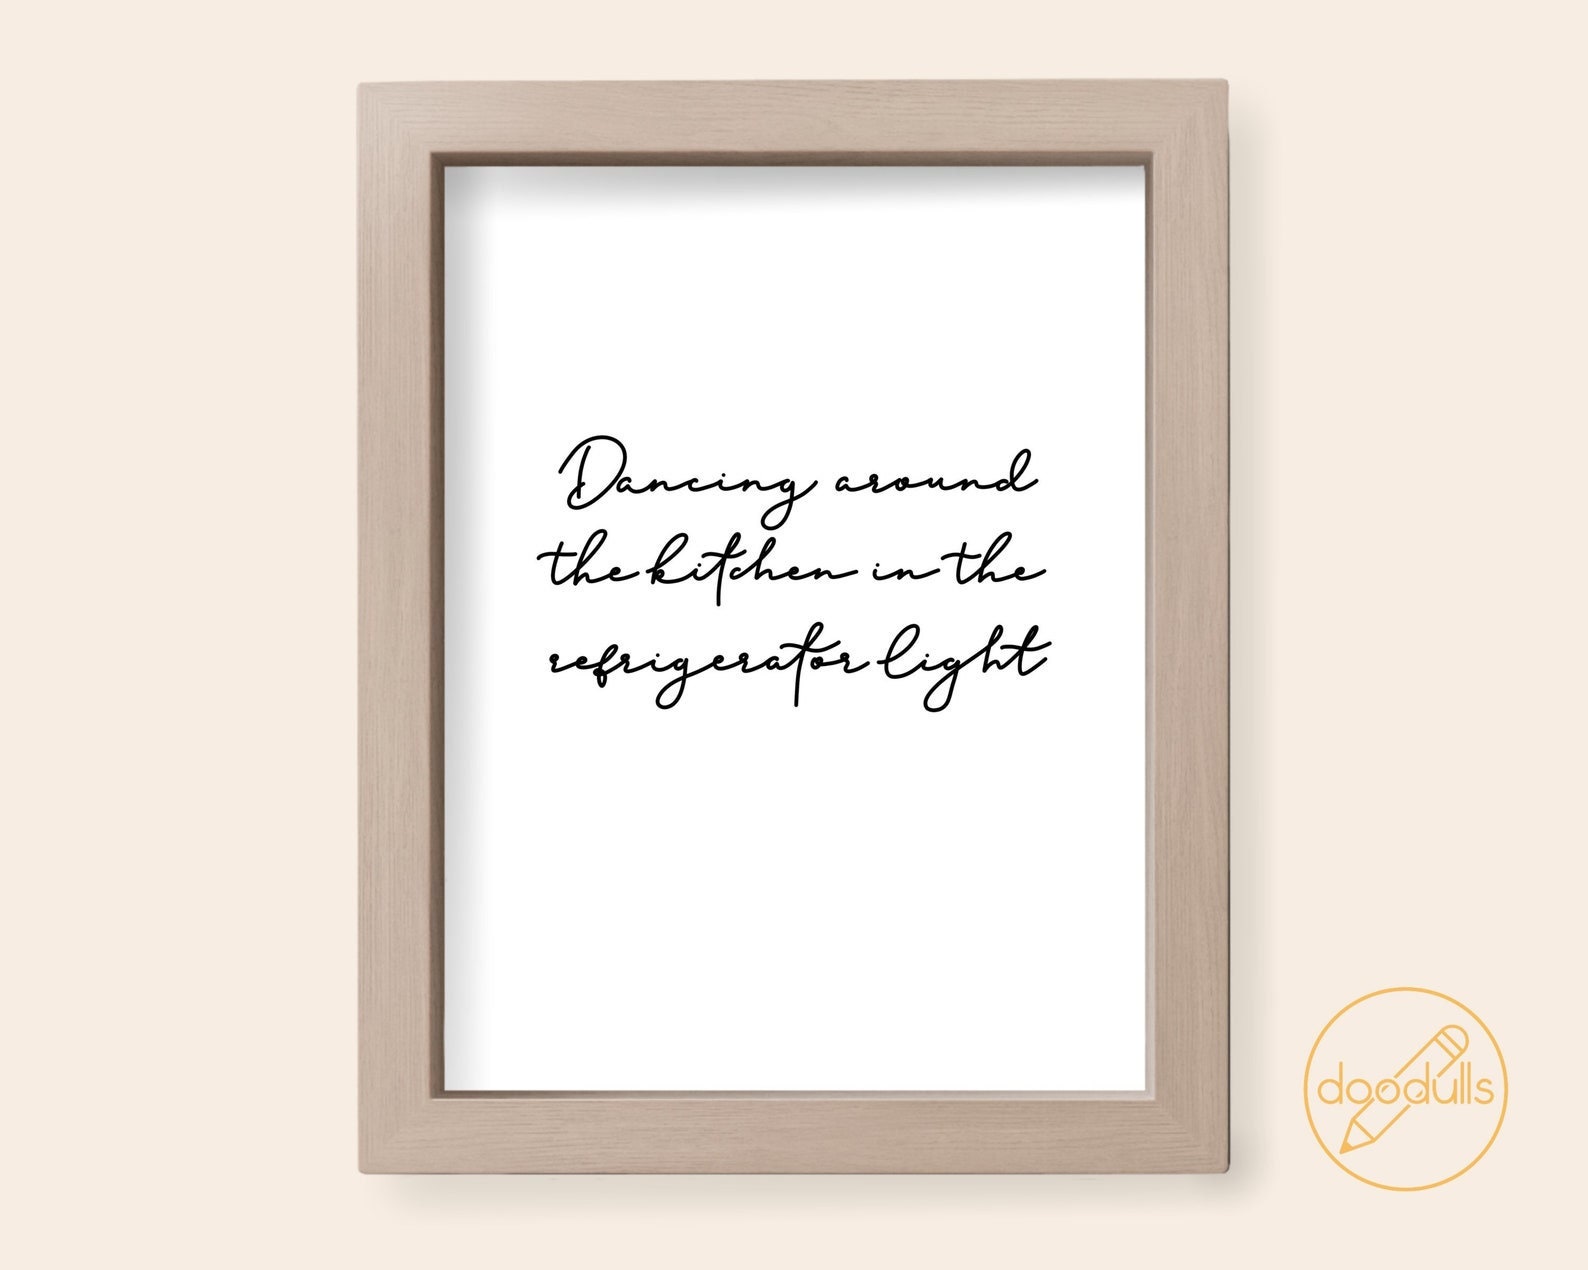 Dancing around
the kitchen in the
refrigerator light
doodulls